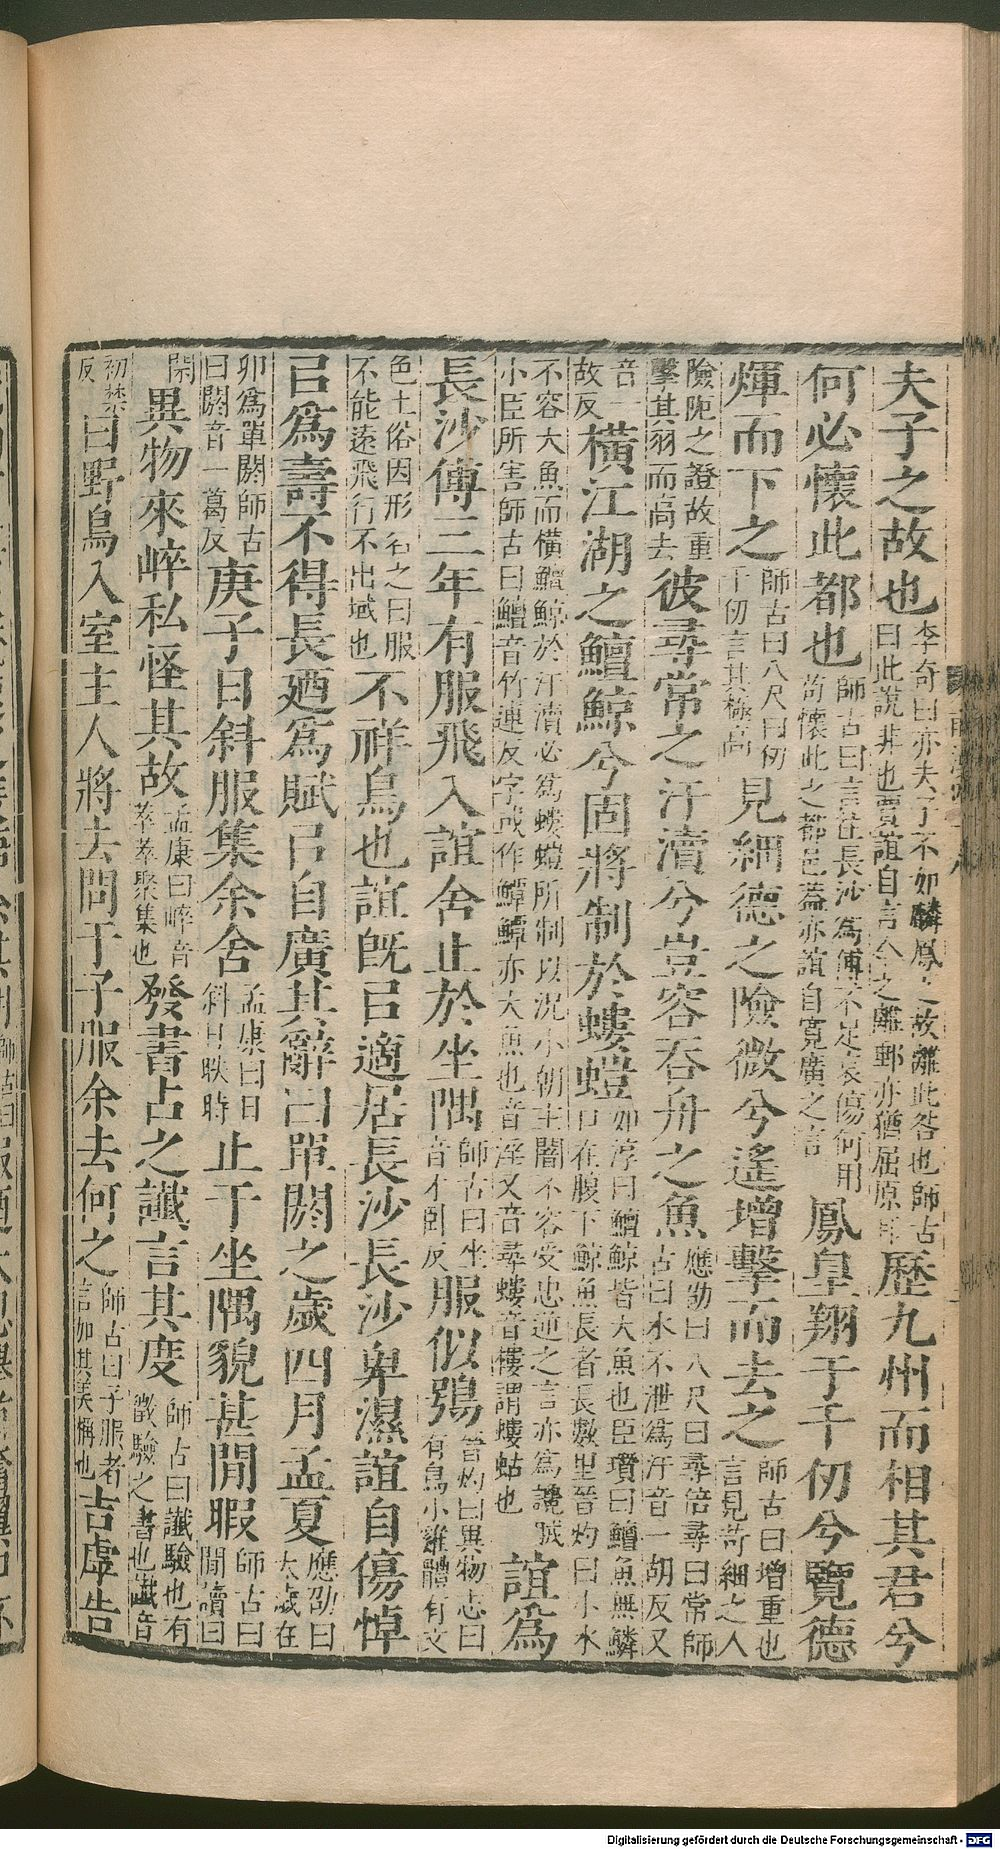 夫子之故也李奇曰亦夫子不如麟鳳之故離此咎也師古曰此說非也賈誼自言今之離郵亦猶屈原耳歷九州而相其君兮
何必懷此都也師古曰言往長沙為傅不足哀傷何用苟懷此之都邑蓋亦誼自寬廣之言鳳皇翔于千仞兮覽德
煇而下之師古曰八尺曰仞千仞言其極高見細德之險微兮遙增擊而去之師古曰增重也言見苛細之人
險阸之證故重擊其羽而高去彼尋常之汙瀆兮豈容吞舟之魚應劭曰八尺曰尋倍尋曰常師古曰水不泄為汙音一胡反又
音一故反橫江湖之鱣鯨兮固將制於螻螘如淳曰鱣鯨皆大魚也臣瓚曰鱣魚無鱗口在腹下鯨魚長者長數里晉灼曰小水
不容大魚而橫鱣鯨於汙瀆必為螻螘所制以況小朝主闇不容受忠逆之言亦為讒賊小臣所害師古曰鱣音竹連反字或作鱏鱏亦大魚也音淫又音尋螻音樓謂螻蛄也誼為
長沙傅三年有服飛入誼舍止於坐隅師古曰坐音才臥反服似鴞晉灼曰異物志曰有鳥小雞體有文
色土俗因形名之曰服不能遠飛行不出域也不祥鳥也誼旣㠯適居長沙長沙卑濕誼自傷悼
㠯為壽不得長廼為賦㠯自廣其辭曰單閼之歲四月孟夏應劭曰太歲在
卯為單閼師古曰閼音一葛反庚子日斜服集余舍孟康曰日斜日昳時止于坐隅貌甚閒暇師古曰閒讀曰
閑異物來崪私怪其故孟康曰崪音萃萃聚集也發書占之讖言其度師古曰讖驗也有徵驗之書也讖音
初禁反曰野鳥入室主人將去問于子服余去何之師古曰子服者言加其美稱也吉虖告
Digitalisierung gefördert durch die Deutsche Forschungsgemeinschaft - DFG